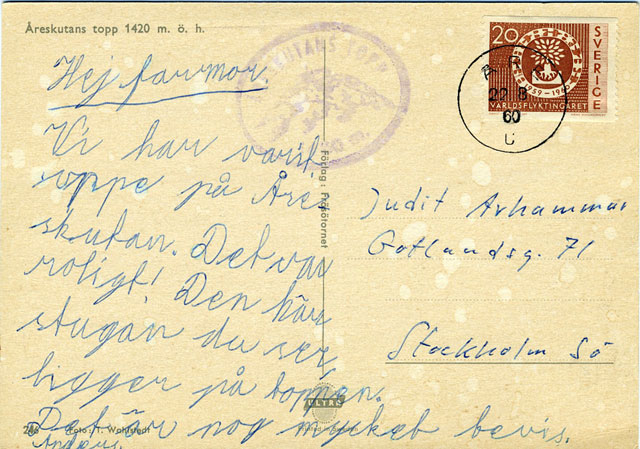 Åreskutans topp 1420 m. ö. h.
Hej farmor.
Vi har varit
oppe på Åre
skutan. Det var
roligt! Den här
stugan du ser
ligger på toppen.
Det är nog mycket bevis.
Anders
246 Foto: T. Wohlstedt
Förlag: Frösötornet
ULTRA
ÅRESKUTANS TOPP
20
SVERIGE
1959-1960
VÄRLDSFLYKTINGÅRET
ÅRE
22 8
60
Judit Arhammar
Gotlandsg. 71
Stockholm Sö